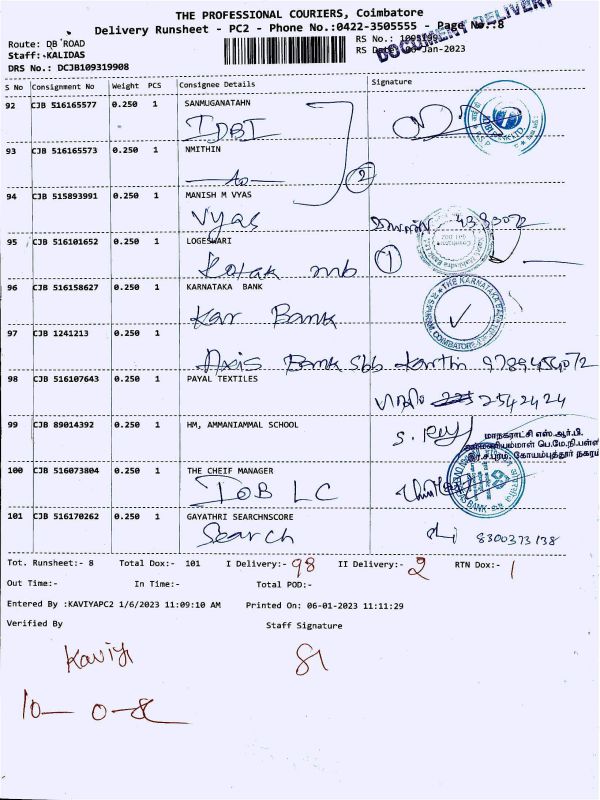 THE PROFESSIONAL COURIERS, Coimbatore
Delivery Runsheet - PC2 - Phone No.:0422-3505555 - Page No.:8
DOCUMENT DELIVERY
Route: DB ROAD
RS No.:
Staff: KALIDAS
RS -Jan-2023
DRS No.: DCJB109319908
S No Consignment No Weight PCS Consignee Details Signature
92 CJB 516165577 0.250 1 SANMUGANATAHN
IDBI
93 CJB 516165573 0.250 1 NMITHIN
2
94 CJB 515893991 0.250 1 MANISH M VYAS
Vyas
95 CJB 516101652 0.250 1 LOGESWARI
1
Kotak mb
96 CJB 516158627 0.250 1 KARNATAKA BANK
Kar Bank
THE KARNATAKA BANK
COIMBATORE
97 CJB 1241213 0.250 1
Axis Bank Sbb
98 CJB 516107643 0.250 1 PAYAL TEXTILES
2542424
99 CJB 89014392 0.250 1 HM, AMMANIAMMAL SCHOOL
மாநகராட்சி எஸ்.ஆர்.பி.
அம்மணியம்மாள் பெ.மே.நி.பள்ளி
ஆர்.எச்.புரம், கோயம்புத்தூர் நகரம்
100 CJB 516073804 0.250 1 THE CHEIF MANAGER
IOB LC
101 CJB 516170262 0.250 1 GAYATHRI SEARCHNSCORE
Search
8300373138
Tot. Runsheet:- 8 Total Dox:- 101 I Delivery:- 98 II Delivery:- 2 RTN Dox:- 1
Out Time:- In Time:- Total POD:-
Entered By :KAVIYAPC2 1/6/2023 11:09:10 AM Printed On: 06-01-2023 11:11:29
Verified By Staff Signature
Kaviya